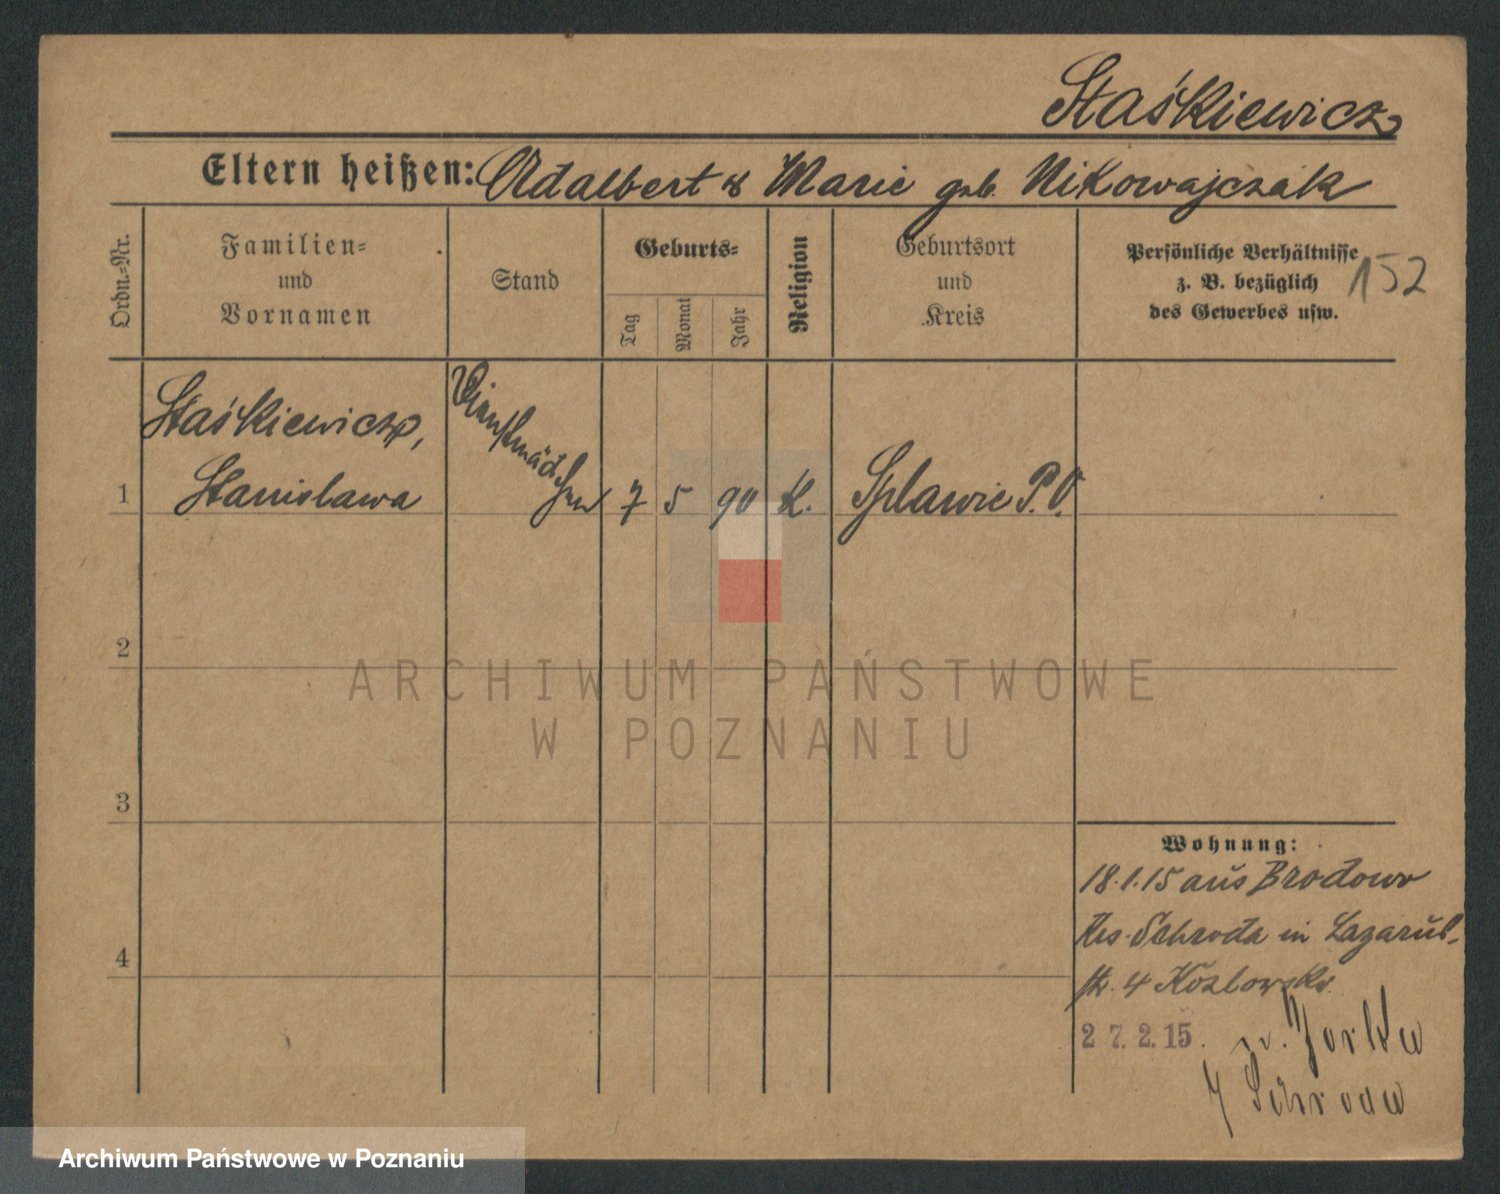 Staśkiewicz
Eltern heißen: Adalbert & Marie geb. Nikowajczak
Ordn.-Nr.
Familien-
und
Vornamen
Stand
Geburts-
Tag
Monat
Jahr
Religion
Geburtsort
und
Kreis
Persönliche Verhältnisse
z. B. bezüglich
des Gewerbes usw.
152
Staśkiewicz,
1 Stanislawa
Dienstmädchen
7 5 90 K. Splawie P. O.
2
3
4
Wohnung:
18.1.15 aus Brodowo
Krs. Schroda in Lazarus-
str. 4 Kozlowski
27.2.15.
Schroda
ARCHIWUM PAŃSTWOWE
W POZNANIU
Archiwum Państwowe w Poznaniu